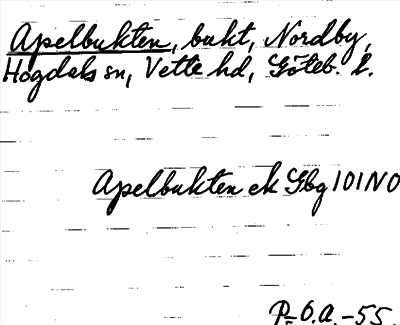 Apelbukten, bukt, Nordby,
Hogdals sn, Vette hd, Göteb. l.
Apelbukten ek Gbg 101 NO
P-O.A. -55.